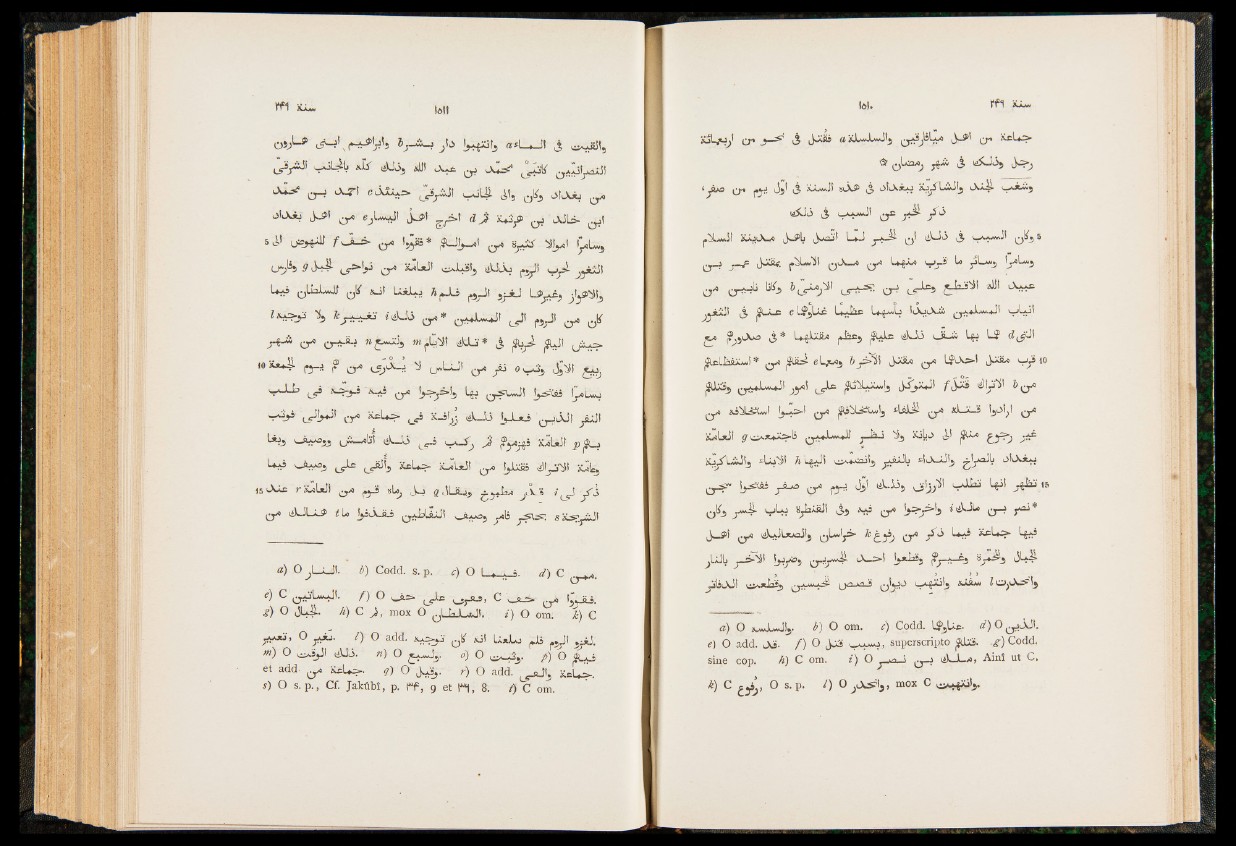 سنة ٢٤٩
١٥١٠
جماعة من اهل ميّافارقين والسلسلة a فقُتل في نحو من اربعمائة
رجل وذلك في شهر رمضان ۞
وشغب الجند والشاكريّة ببغداد في هذه السنة في اوّل يوم من صفر،
ذكر الخبر عن السبب في ذلك
5 وكان السبب في ذلك ان الخبر لمّا اتّصل باهل مدينة السلام
وسامرّا وسائر ما قرب منها من مدن الاسلام بمقتل عمر بن
عبيد الله الاقطع وعلىّ بن يحيى الارمنىّ b وكانا نابين من
انياب المسلمين شديدًا بأسهما عظيما غناؤهما c عنهم في الثغور
التى d هما بها شقّ ذلك عليهم وعظم مقتلهما *في صدورهم مع
10 قرب مقتل احدهما من مقتل الآخر b وما e لحقهم *من استفظاعهم
من b الاتراك قَتْلَ f المتوكّل واستيلائهم على امور المسلمين وقتلهم
من ارادوا قتله من الخلفاء واستخلافهم من احبّوا استخلافه من
غير رجوع منهم الى ديانة ولا نظر للمسلمين فاجتمعت g العامّة
ببغداد بالصراخ والنداء بالنفير وانضمّت اليها h الابناء والشاكريّة
15 تظهر انها تطلب الارزاق وذلك اوّل يوم من صفر ففتحوا سجن
*نصر بن مالك i واخرجوا من فيه وفي القنطرة بباب الجسر وكان
فيها جماعة فيما ذكر من رفوغ k خراسان والصعاليك من اهل
الجبال والمحمّرة وغيرهم وقطعوا احد الجسرين وضربوا الآخر بالنار
وانحدرت l سُفُنه وانتُهب ديوان قصص المحبّسين وقُطعت الدفاتر
a) O والسلسله. b) O om. c) Codd. عناوها. d) O الذين.
e) O add. قد. f) O بسبب قتل, superscripto قتلهم. g) Codd.
sine cop. h) C om. i) O ملك بن نصر, Ainî ut C.
k) C رُفوع, O s. p. l) O وانحدر, mox C وانتهبت.
سنة ٢٤٩
١٥١١
والقيت في الماء a وانتهبوا دار بشر b وابراهيم ابنى هارون
النصرانيّين كاتبَىْ محمّد بن عبد الله وذلك كلّه بالجانب الشرقىّ
من بغداد وكان والى الجانب الشرقىّ حينئذ c احمد بن محمّد
ابن خالد بن هرثمة ثم d اخرج اهل اليسار e من اهل بغداد
5 وسامرّا اموالا كثيرة من اموالهم *فقوّوا من خفّ f للنهوض الى
الثغور لحرب الروم بذلك واقبلت العامّة من نواحى الجبل g وفارس
والاهواز وغيرها لغزو الروم فلم h يبلغنا انه كان للسلطان فيما
كان من الروم الى المسلمين *من ذلك i تغيير k ولا توجيه l
جيش اليهم لحربهم في *تلك الايّام m ولتسع n بقين من شهر
10 ربيع الاوّل وثب o نفر من الناس لا يُدْرَى من هم يوم الجمعة
بسامرّا ففتحوا السجن بها واخرجوا من فيه فوجّه في طلب
النفر الذين فعلوا ذلك زُرافة في جماعة من الموالى فوثب
بهم p العامّة فهزموهم ثم ركب في ذلك أُتامش ووصيف وبغا
وعامّة الاتراك فقتلوا من العامّة جماعة وأُلقى على وصيف فيما
15 ذكر لى i قدْر مطبوخ ويقال q بل رماه قوم من العامّة r عند
الشريجة s بحجر فامر وصيف النفّاطين فقذفوا ما t هنالك من
a) O النار. b) Codd. s. p. c) O فيما. d) C من.
e) C اليساتين. f) O فعرى على خف, C فقووا من خف.
g) O الجبال. h) C ثم, mox O السلطان. i) O om. k) C
تعيير, O تغير. l) O add. لغزو الروم فلم يبلغنا انه كان توجيه.
m) O ذلك الوقت. n) O ولسبع. o) O ووثبت. p) O فيهم
et add. من جماعة. q) O وقيل. r) O add. جماعة والعى.
s) O s. p., Cf. Jakûbî, p. ٣٤, 9 et ٣٦, 8. t) C om.